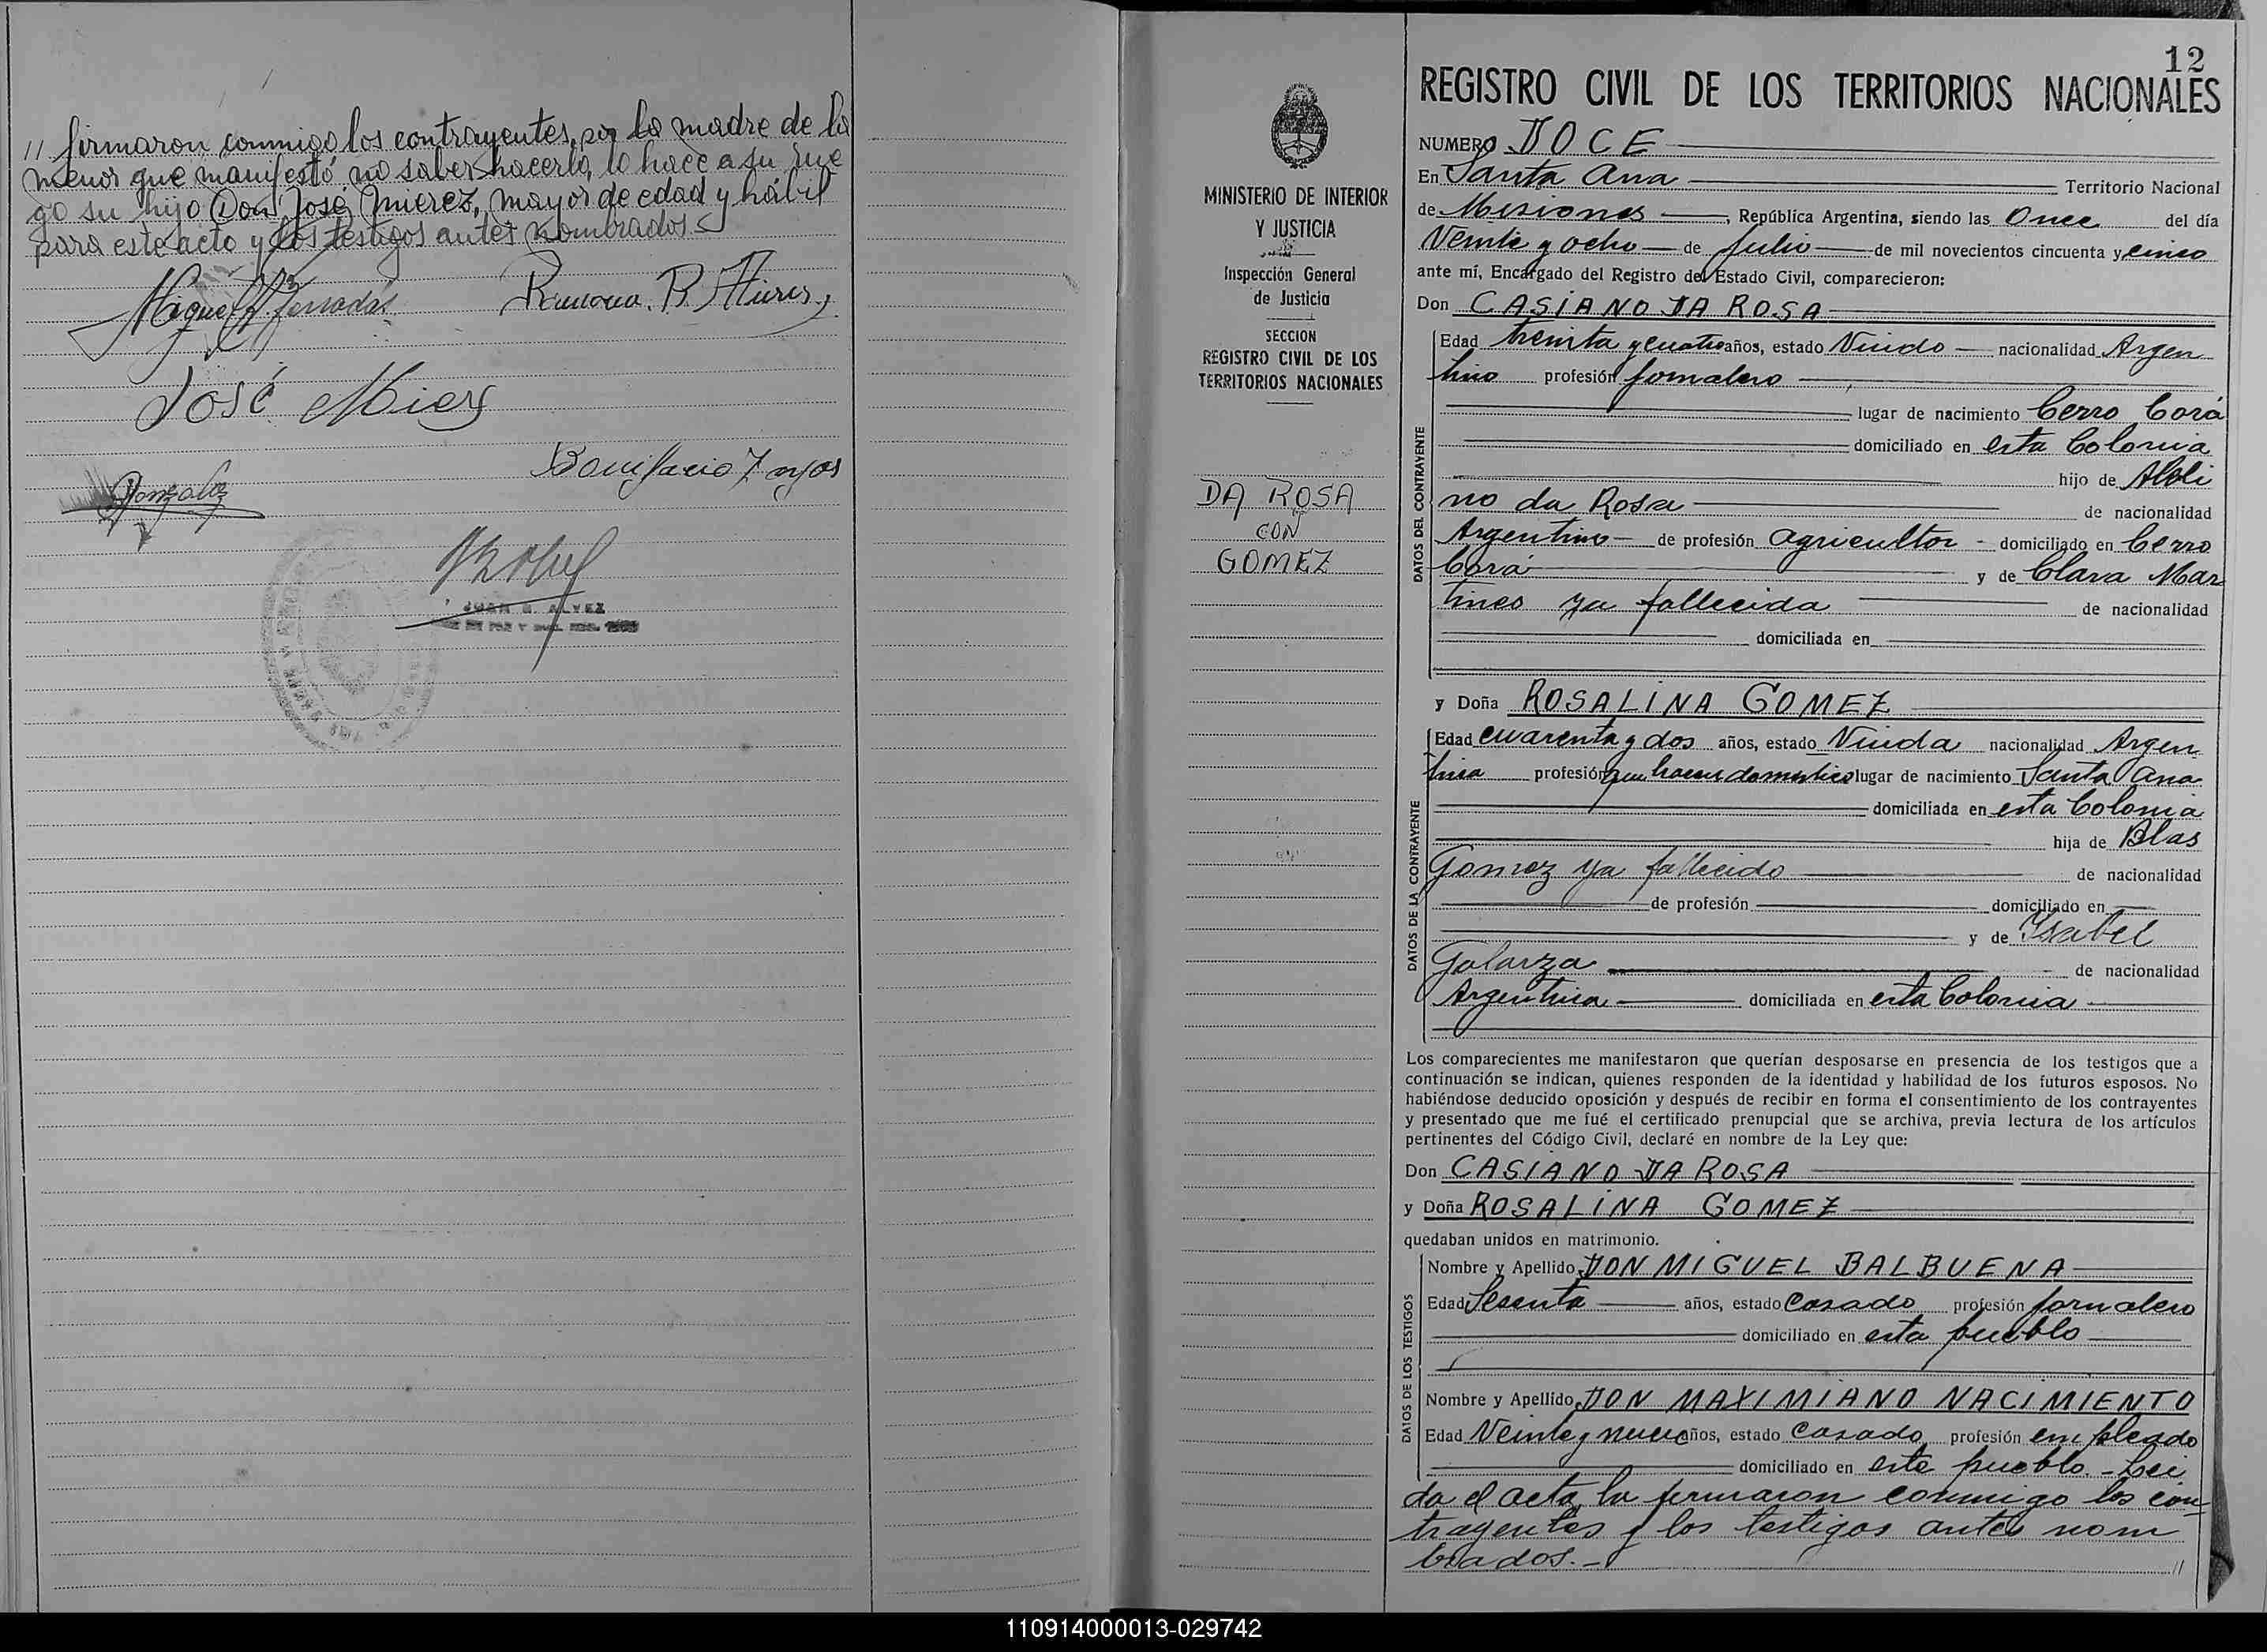 // firmaron conmigo los contrayentes, por la madre de la
menor que manifestó no saber hacerlo, lo hace a su rue
go su hijo Don José, mayor de edad y hábil
para este acto y los testigos antes nombrados.
Miguel
Ramona. B.
José
Bonifacio
Gonzalez
JUAN B. ALVEZ
12
REGISTRO CIVIL DE LOS TERRITORIOS NACIONALES
MINISTERIO DE INTERIOR
Y JUSTICIA
Inspección General
de Justicia
SECCION
REGISTRO CIVIL DE LOS
TERRITORIOS NACIONALES
DA ROSA
CON
GOMEZ
NUMERO DOCE
En Santa Ana Territorio Nacional
de Misiones, República Argentina, siendo las Once del día
Veinte y ocho de Julio de mil novecientos cincuenta y cinco
ante mí, Encargado del Registro del Estado Civil, comparecieron:
Don CASIANO DA ROSA
DATOS DEL CONTRAYENTE
Edad treinta y cuatro años, estado Viudo nacionalidad Argen
tino profesión jornalero
lugar de nacimiento Cerro Corá
domiciliado en esta Colonia
hijo de Albi
no da Rosa de nacionalidad
Argentino de profesión agricultor domiciliado en Cerro
Corá y de Clara Mar
tines ya fallecida de nacionalidad
domiciliada en
y Doña ROSALINA GOMEZ
DATOS DE LA CONTRAYENTE
Edad cuarenta y dos años, estado Viuda nacionalidad Argen
tina profesión que haceres domesticos lugar de nacimiento Santa Ana
domiciliada en esta Colonia
hija de Blas
Gomez ya fallecido de nacionalidad
de profesión domiciliado en
y de Ysabel
Galarza de nacionalidad
Argentina domiciliada en esta Colonia
Los comparecientes me manifestaron que querían desposarse en presencia de los testigos que a
continuación se indican, quienes responden de la identidad y habilidad de los futuros esposos. No
habiéndose deducido oposición y después de recibir en forma el consentimiento de los contrayentes
y presentado que me fué el certificado prenupcial que se archiva, previa lectura de los artículos
pertinentes del Código Civil, declaré en nombre de la Ley que:
Don CASIANO DA ROSA
y Doña ROSALINA GOMEZ
quedaban unidos en matrimonio.
DATOS DE LOS TESTIGOS
Nombre y Apellido DON MIGUEL BALBUENA
Edad Sesenta años, estado Casado profesión jornalero
domiciliado en este pueblo
Nombre y Apellido DON MAXIMIANO NACIMIENTO
Edad Veinte y nueve años, estado Casado profesión empleado
domiciliado en este pueblo.- Lei
da el acta, la firmaron conmigo los con
trayentes y los testigos antes nom
brados.- //
110914000013-029742